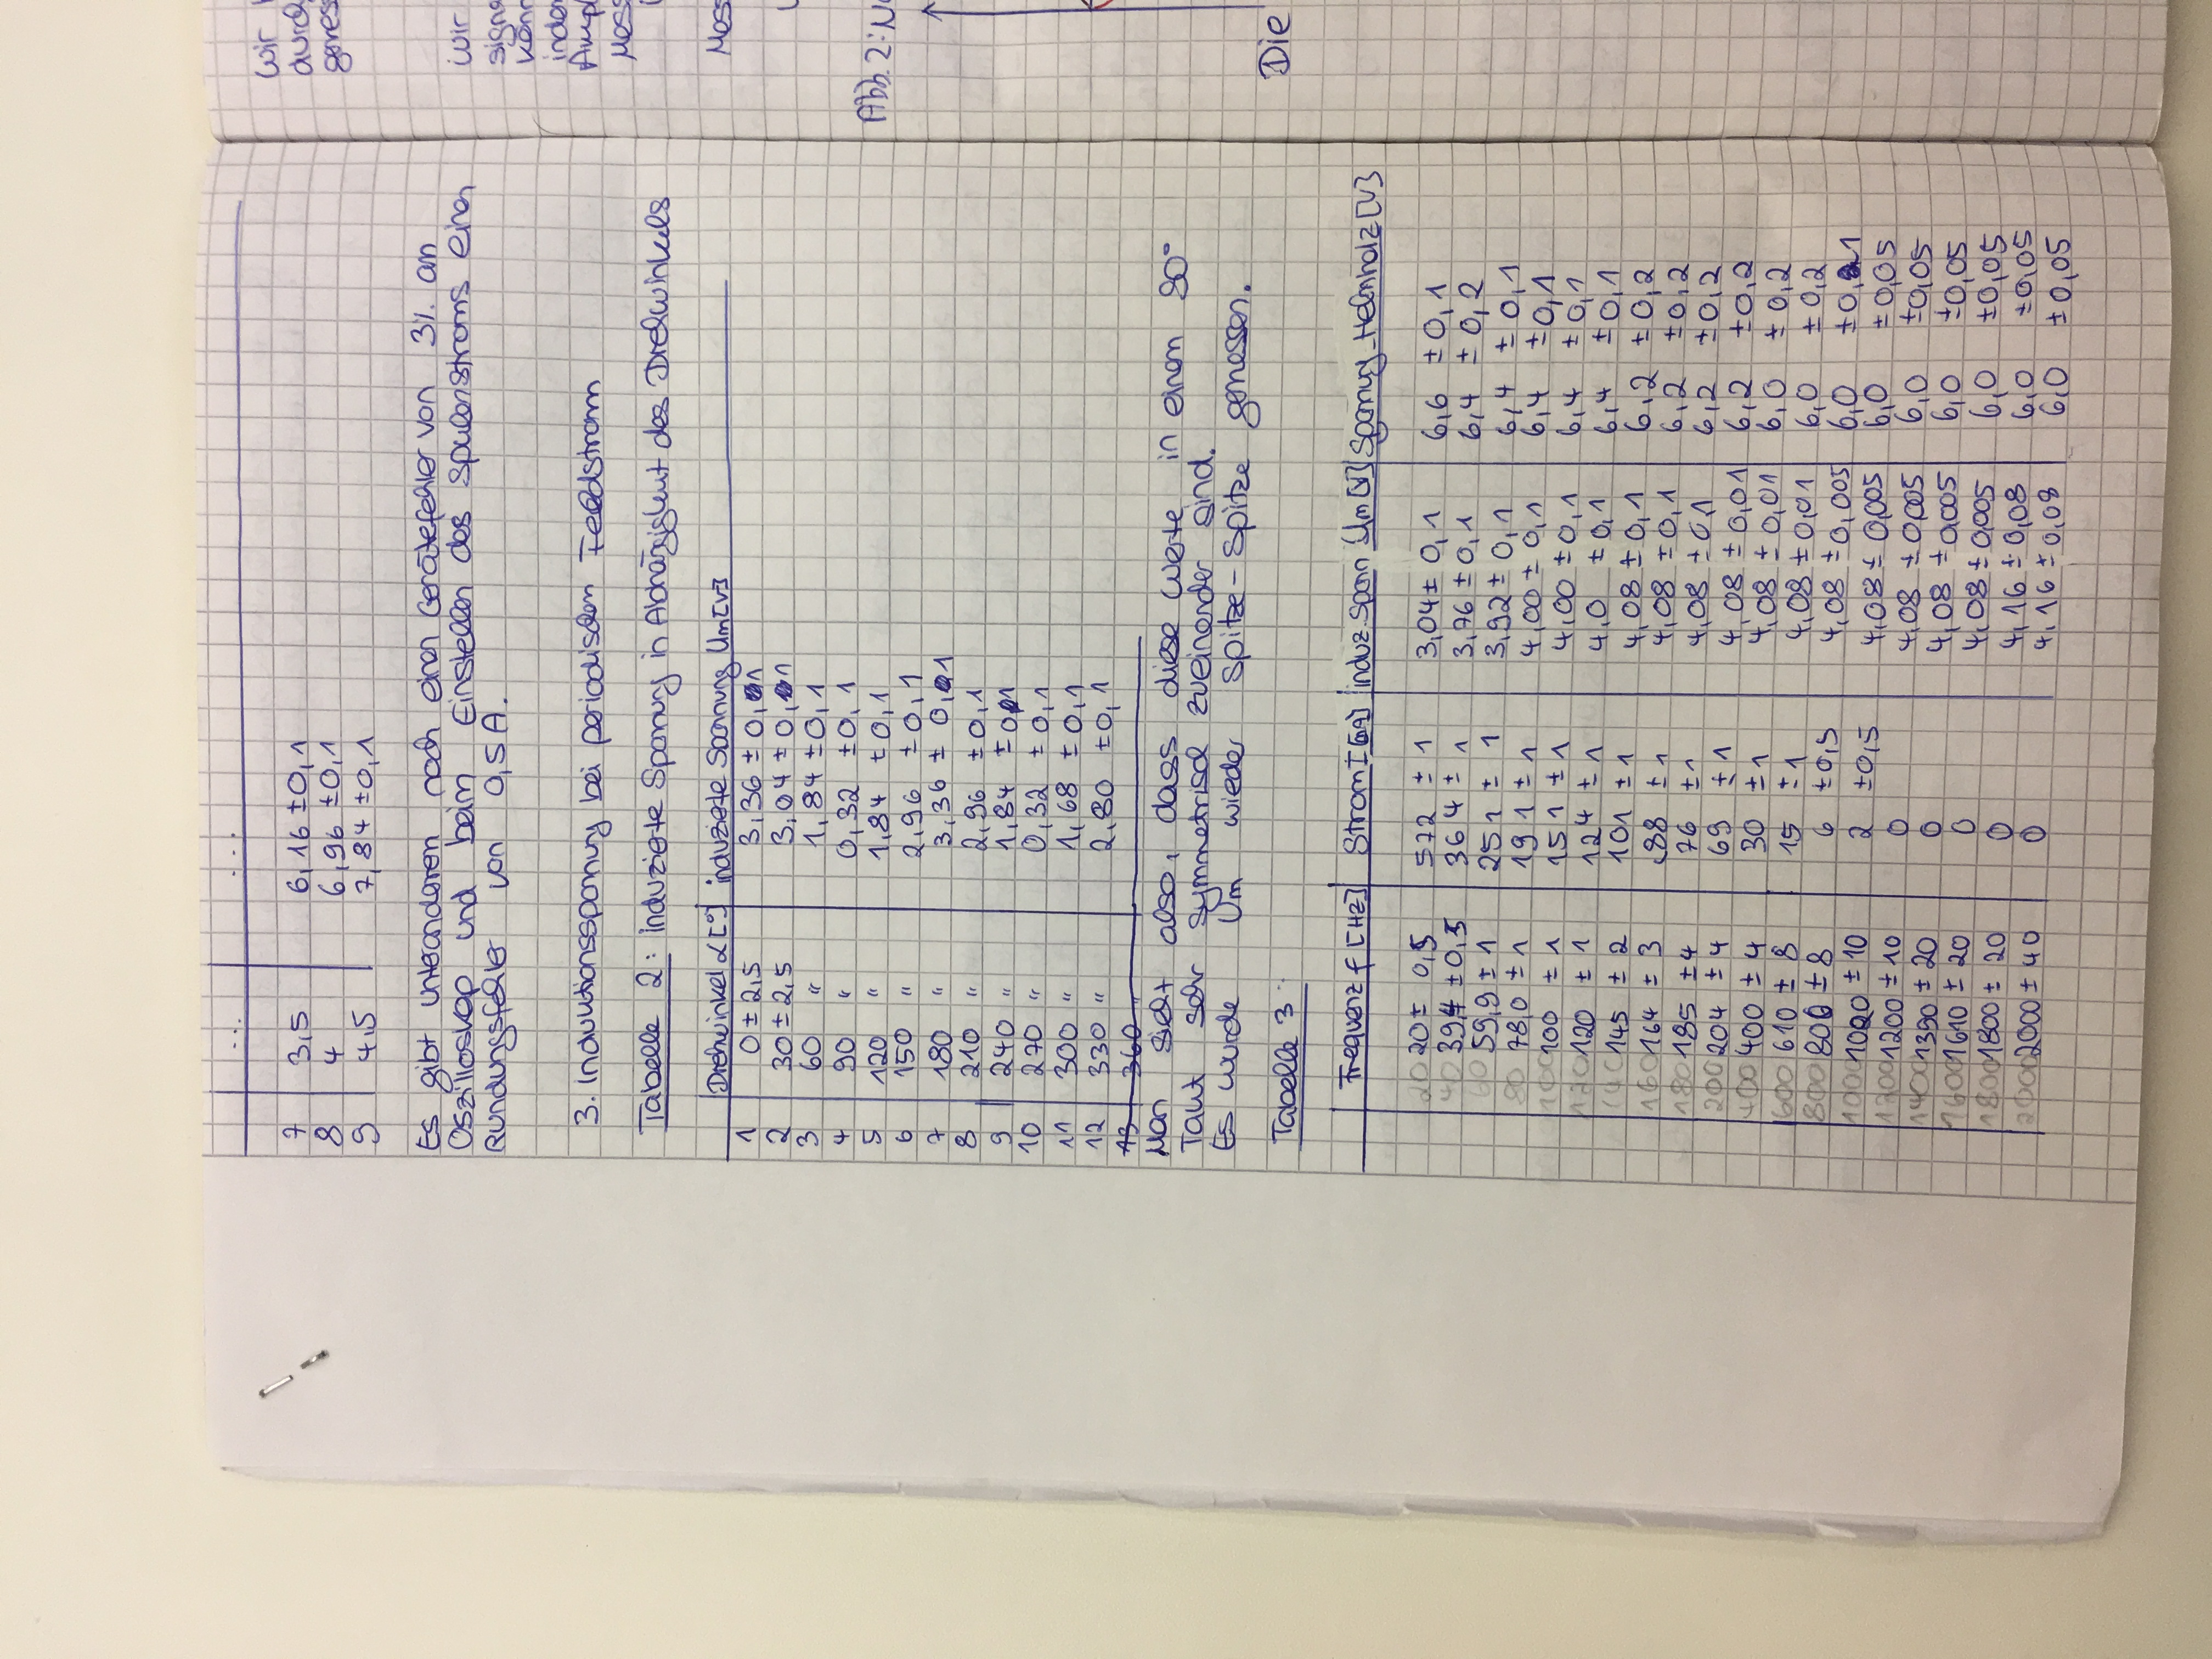 ... ...
7 3,5 6,16 ±0,1
8 4 6,96 ±0,1
9 4,5 7,84 ±0,1
Es gibt unteranderem noch einen Gerätefehler von 3% am
Oszilloskop und beim Einstellen des Spulenstroms einen
Rundungsfehler von 0,5A.
3. Induktionsspannung bei periodischem Feldstrom
Tabelle 2: induzierte Spannung in Abhängigkeit des Drehwinkels
Drehwinkel α[°] induzierte Spannung Um[V]
1 0 ± 2,5 3,36 ± 0,1
2 30 ± 2,5 3,04 ± 0,1
3 60 " 1,84 ±0,1
4 90 " 0,32 ±0,1
5 120 " 1,84 ±0,1
6 150 " 2,96 ±0,1
7 180 " 3,36 ± 0,1
8 210 " 2,96 ±0,1
9 240 " 1,84 ±0,1
10 270 " 0,32 ±0,1
11 300 " 1,68 ±0,1
12 330 " 2,80 ±0,1
13 360 "
Man sieht also, dass diese Werte in einem 90°
Takt sehr symmetrisch zueinander sind.
Es wurde Um wieder Spitze-Spitze gemessen.
Tabelle 3
Frequenz f [HZ] Strom I [mA] induz. Spann Um [V] Spannung-Helmholz [V]
20 20± 0,5 572 ± 1 3,04± 0,1 6,6 ±0,1
40 39,4 ±0,5 364 ± 1 3,76 ±0,1 6,4 ±0,2
60 59,9 ± 1 251 ± 1 3,92± 0,1 6,4 ±0,1
80 78,0 ±1 191 ±1 4,00± 0,1 6,4 ±0,1
100 100 ±1 151 ±1 4,00 ±0,1 6,4 ±0,1
120 120 ± 1 124 ±1 4,0 ±0,1 6,4 ±0,1
140 145 ± 2 101 ±1 4,08 ±0,1 6,2 ±0,2
160 164 ± 3 88 ±1 4,08 ±0,1 6,2 ±0,2
180 185 ±4 76 ±1 4,08 ±0,1 6,2 ±0,2
200 204 ±4 69 ±1 4,08 ±0,01 6,2 ±0,2
400 400 ±4 30 ±1 4,08 ±0,01 6,0 ±0,2
600 610 ± 8 15 ±1 4,08 ±0,01 6,0 ±0,2
800 806 ±8 6 ±0,5 4,08 ±0,005 6,0 ±0,1
1000 1020 ±10 2 ±0,5 4,08± 0,005 6,0 ±0,05
1200 1200 ±10 0 4,08 ±0,005 6,0 ±0,05
1400 1390 ± 20 0 4,08 ±0,005 6,0 ±0,05
1600 1610 ± 20 0 4,08 ±0,005 6,0 ±0,05
1800 1800 ± 20 0 4,16 ±0,08 6,0 ±0,05
2000 2000 ± 40 0 4,16 ±0,08 6,0 ±0,05
wir
durch
wir
Mess
Abb. 2:
Die